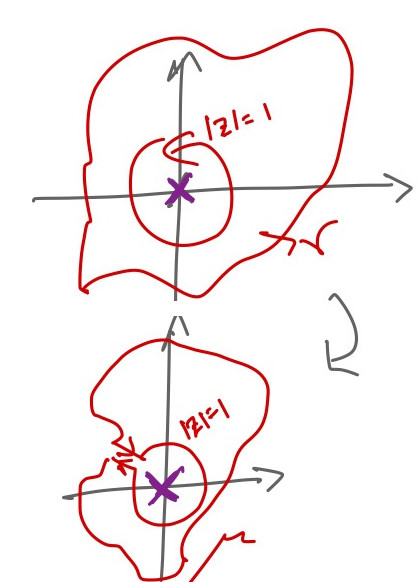 |z|=1
γ
|z|=1
μ